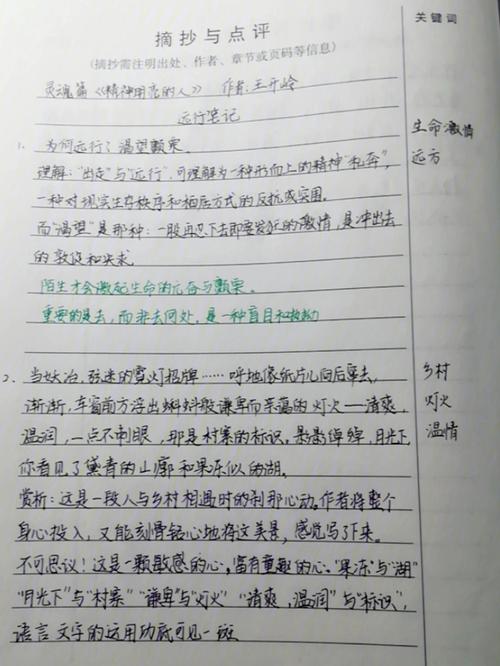 摘抄与点评
(摘抄需注明出处、作者、章节或页码等信息)
关键词
灵魂篇《精神明亮的人》 作者:王开岭
远行笔记
生命激情
远方
1、为何远行?渴望颤栗.
理解:"出走"与"远行",可理解为一种形而上的精神"私奔",
一种对现实生存秩序和栖居方式的反抗或突围.
而"渴望"是那种:一股再忍下去即要发狂的激情,是冲出去
的敦促和央求.
陌生才会激起生命的亢奋与颤栗.
重要的是去,而非去何处,是一种盲目和
2、当妖冶,弦迷的霓灯招牌……呼地像纸片儿向后窜去,
渐渐,车窗前方浮出蝌蚪般谦卑而亲蔼的灯火——清爽,
温润,一点不刺眼,那是村寨的标识.影影绰绰,月光下,
你看见了黛青的山廓和果冻似的湖.
乡村
灯火
温情
赏析:这是一段人与乡村相遇时的刹那心动.作者将整个
身心投入,又能刻骨铭心地将这美景,感觉写了下来.
不可思议!这是一颗敏感的心,富有童趣的心."果冻"与"湖"
"月光下"与"村寨""谦卑"与"灯火""清爽,温润"与"标识",
语言文字的运用功底可见一斑.